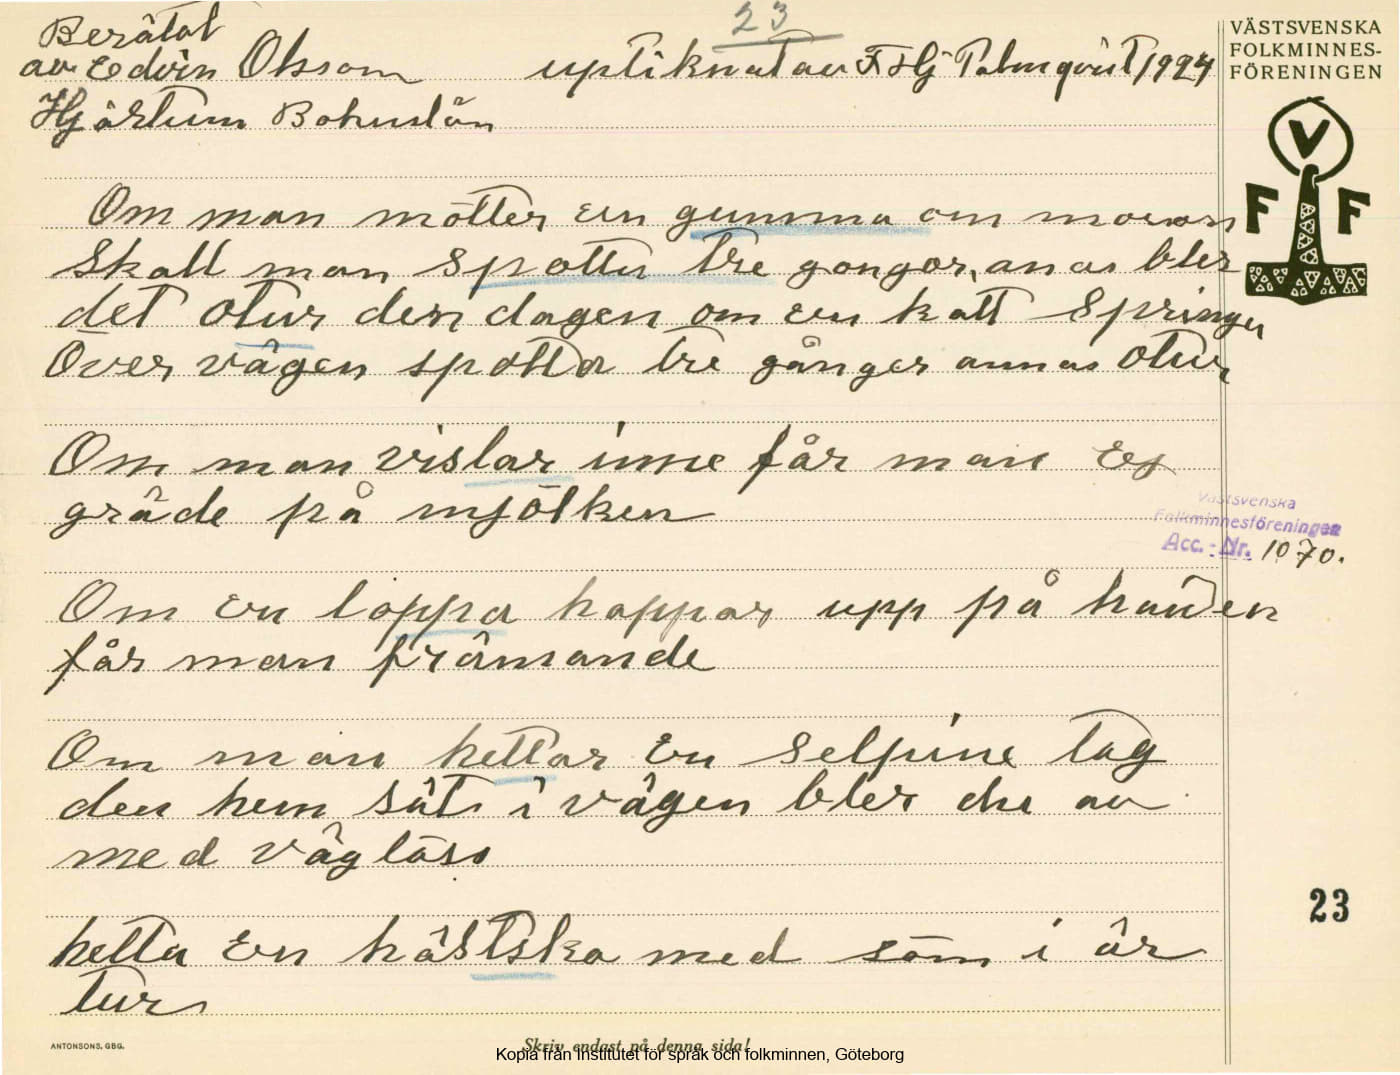 23
Berätat
av Edvin Olsson uptiknat av F Hj Palmqvist 1927
Hjärtum Bohuslän
VÄSTSVENSKA
FOLKMINNES-
FÖRENINGEN
V
F F
Om man mötter en gumma om moron
skall man spotta tre gongor, anas bler
det otur den dagen om en katt springer
över vägen spotta tre gånger annas otur
Om man vislar inne får man Ej
gräde på mjölken
Västsvenska
Folkminnesföreningen
Acc.-Nr. 1070.
Om en loppa hoppar upp på handen
får man främande
Om man hettar En selpine tag
den hem sät i vägen bler du av
med väglöss
23
hetta En hästsko med söm i är
tur
ANTONSONS, GBG.
Skriv endast på denna sida!
Kopia från Institutet för språk och folkminnen, Göteborg